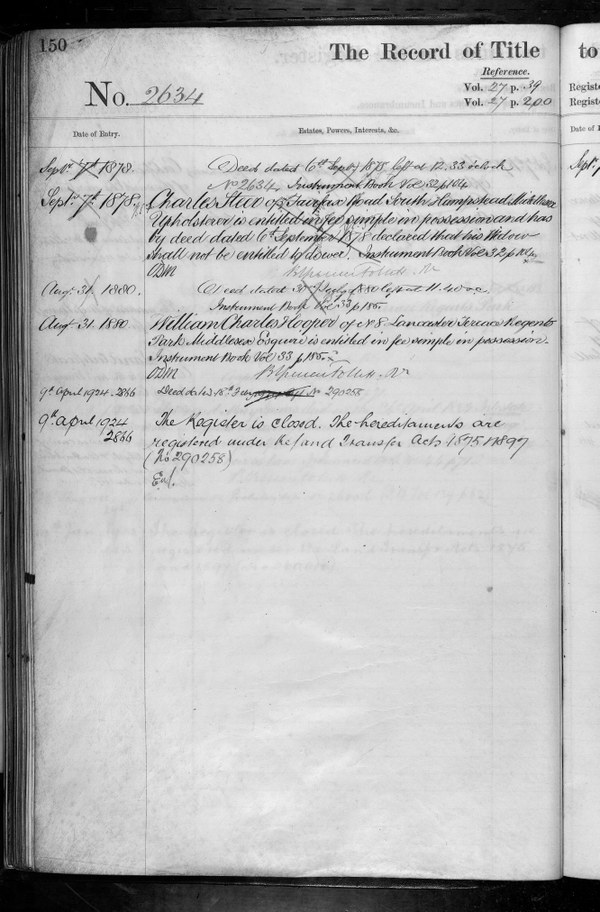 150
The Record of Title
to
Reference.
No. 2634
Vol. 27 p. 39
Vol. 27 p. 200
Registe
Registe
Date of Entry.
Estates, Powers, Interests, &c.
Date of E
Septr. 7th 1878.
Deed dated 6th Septr 1878 left at 12.33 o'clock
No 2634. Instrument Book Vol 32 p 104
Septr. 7th 1878
Charles Stace of Fairfax Road South Hampstead Middlesex
Upholsterer is entitled in fee simple in possession and has
by deed dated 6th September 1878 declared that his Widow
shall not be entitled to dower. Instrument Book Vol 32 p 104
Aug. 31. 1880.
Deed dated July 1880 left at 11.40
Instrument Book Vol 33 p 185.
Aug. 31. 1880
William Charles Hooper of No 8 Lancaster Terrace Regents
Park Middlesex Esquire is entitled in fee simple in possession.
Instrument Book Vol 33 p 185.
9th April 1924. 2866
Deed dated No 290258
9th April 1924
2866
The Register is closed. The hereditaments are
registered under the Land Transfer Acts 1875 & 1897
(No 290258)